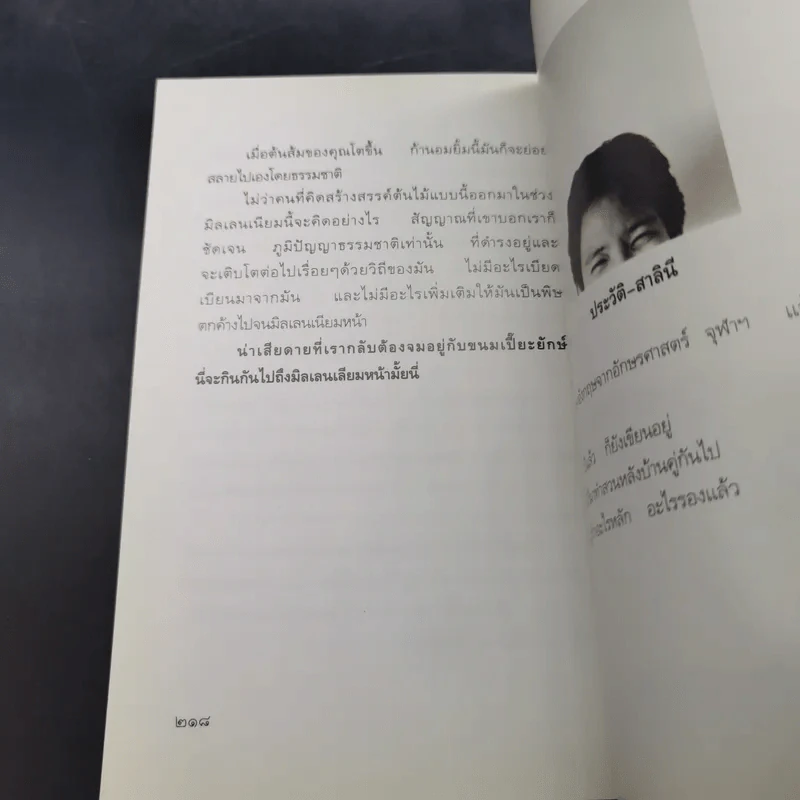 เมื่อต้นส้มของคุณโตขึ้น ก้านอมยิ้มนี้มันก็จะย่อย
สลายไปเองโดยธรรมชาติ
ไม่ว่าคนที่คิดสร้างสรรค์ต้นไม้แบบนี้ออกมาในช่วง
มิลเลนเนียมนี้จะคิดอย่างไร สัญญาณที่เขาบอกเราก็
ชัดเจน ภูมิปัญญาธรรมชาติเท่านั้น ที่ดำรงอยู่และ
จะเติบโตต่อไปเรื่อยๆด้วยวิถีของมัน ไม่มีอะไรเบียด
เบียนมาจากมัน และไม่มีอะไรเพิ่มเติมให้มันเป็นพิษ
ตกค้างไปจนมิลเลนเนียมหน้า
น่าเสียดายที่เรากลับต้องจมอยู่กับขนมเปี๊ยะยักษ์
นี่จะกินกันไปถึงมิลเลนเลียมหน้ามั้ยนี่
๒๑๘
ประวัติ-สาลินี
จากอักษรศาสตร์ จุฬาฯ
ก็ยังเขียนอยู่
ทำสวนหลังบ้านคู่กันไป
อะไรหลัก อะไรรองแล้ว